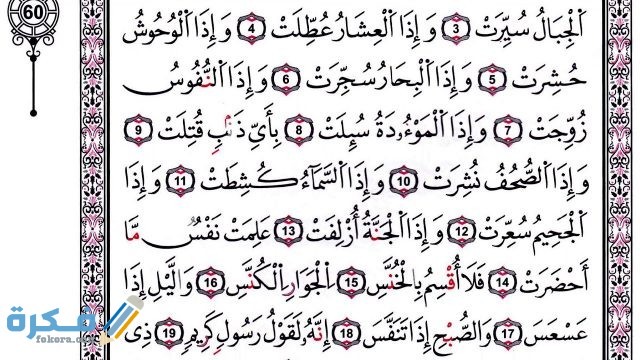 60
اَ۬لْجِبَالُ سُيِّرَتْ 3 وَإِذَا اَ۬لْعِشَارُ عُطِّلَتْ 4 وَإِذَا اَ۬لْوُحُوشُ
حُشِرَتْ 5 وَإِذَا اَ۬لْبِحَارُ سُجِّرَتْ 6 وَإِذَا اَ۬لنُّفُوسُ
زُوِّجَتْ 7 وَإِذَا اَ۬لْمَوْءُۥدَةُ سُئِلَتْ 8 بِأَيِّ ذَنۢبٍ قُتِلَتْ 9
وَإِذَا اَ۬لصُّحُفُ نُشِرَتْ 10 وَإِذَا اَ۬لسَّمَآءُ كُشِطَتْ 11 وَإِذَا
اَ۬لْجَحِيمُ سُعِّرَتْ 12 وَإِذَا اَ۬لْجَنَّةُ أُزْلِفَتْ 13 عَلِمَتْ نَفْسٌ مَّا
أَحْضَرَتْ 14 فَلَا أُقْسِمُ بِالْخُنَّسِ 15 اِ۬لْجَوَارِ اِ۬لْكُنَّسِ 16 وَالَّيْلِ إِذَا
عَسْعَسَ 17 وَالصُّبْحِ إِذَا تَنَفَّسَ 18 إِنَّهُۥ لَقَوْلُ رَسُولٍ كَرِيمٍ 19 ذِي
فكرة
fokora.com